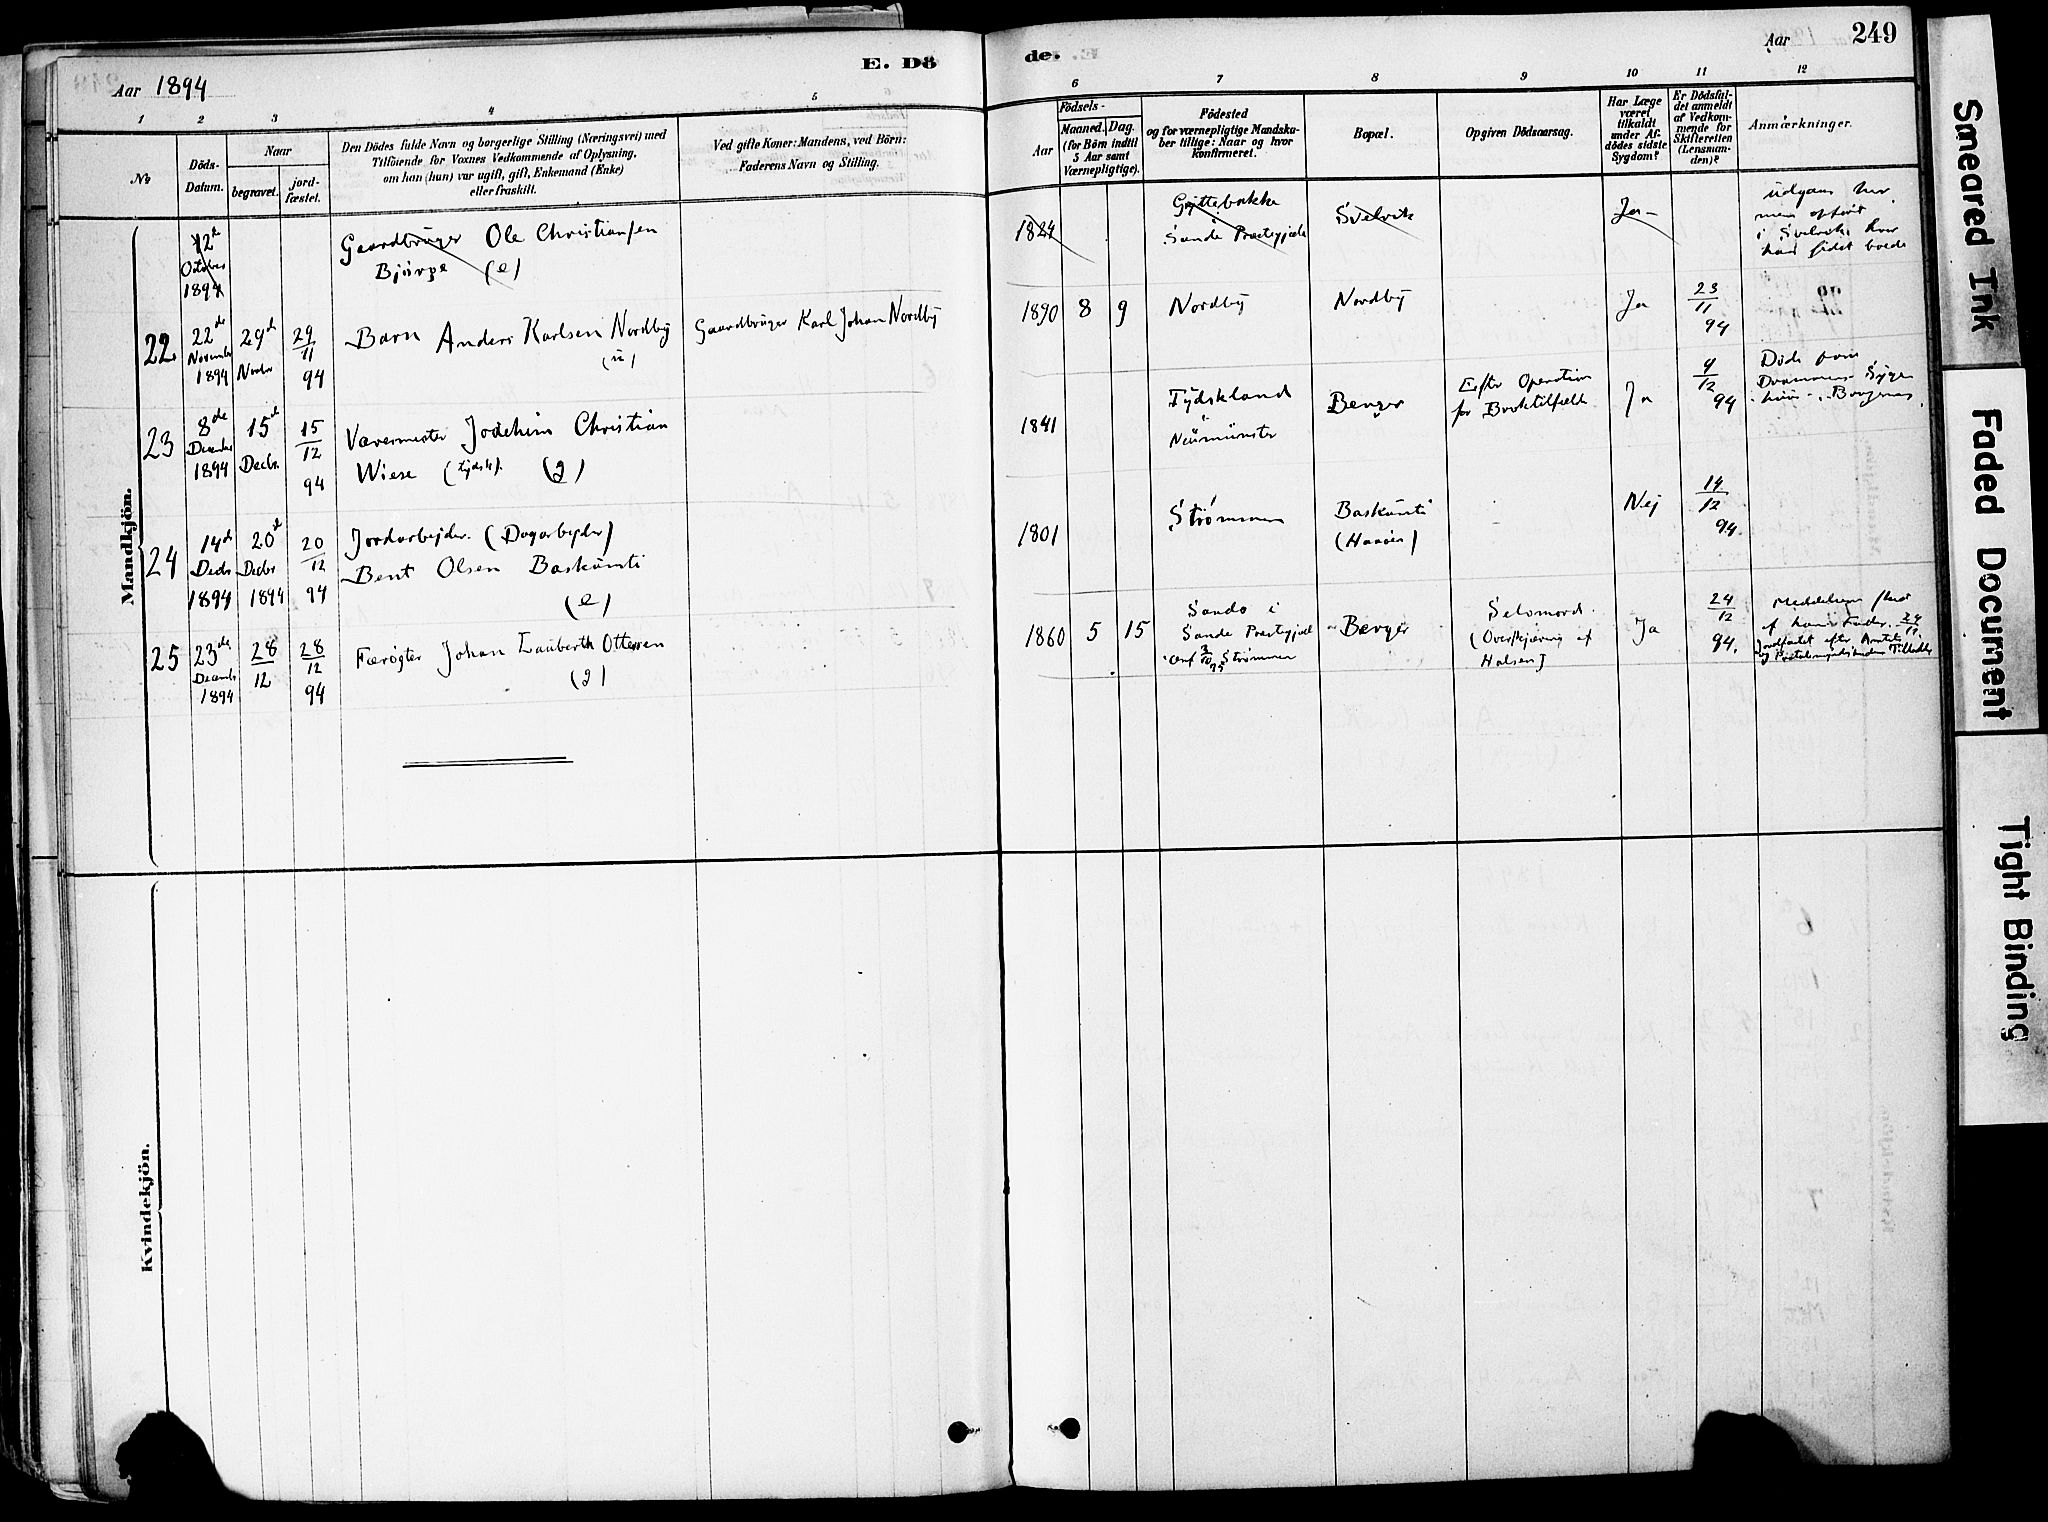 E. Dö
de.
Aar
249
Aar 1894
1
2
3
4
5
6
7
8
9
10
11
12
No
Döds-
Datum.
Naar
begravet.
jord-
fæstet.
Den Dödes fulde Navn og borgerlige Stilling (Næringsvei) med
Tilföiende for Voxnes Vedkommende af Oplysning,
om han (hun) var ugift, gift, Enkemand (Enke)
eller fraskilt.
Ved gifte Koner: Mandens, ved Börn:
Faderens Navn og Stilling.
Födsels-
Aar
Maaned. Dag.
(for Börn indtil
5 Aar samt
Værnepligtige).
Födested
og for værnepligtige Mandska-
ber tillige: Naar og hvor
konfirmeret.
Bopæl.
Opgiven Dödsaarsag.
Har Læge
været
tilkaldt
under Af-
dödes sidste
Sygdom?
Er Dödsfal-
det anmeldt
af Vedkom-
mende for
Skifteretten
(Lensman-
den)?
Anmærkninger.
Mandkjön.
12te
October
1894
Gaardbruger Ole Christiansen
(e)
1824
Sande Præstegjeld
Svelvik
Ja
udgaar her
men opført
i Svelvik hvor
han sidst boede
22.
22de
Novembr
1894
29de
Novbr
29
11
94
Barn Anders Karlsen Nordby
(u)
Gaardbruger Karl Johan Nordby
1890 8 9
Nordby
Nordby
Ja
23
11
94
23
8de
Decembr
1894
15de
Decbr.
15
12
94
Vævermester Jochim Christian
Wiese (tydsk). (g)
1841
Tydskland
Neumünster
Berger
Efter Operation
for Broktilfælde
Ja
9
12
94
Døde paa
Drammens Syge-
24
14de
Decbr
1894
20de
Decbr
1894
20
12
94
Jordarbejder. (Dagarbejder)
Bent Olsen Baskämti
(e)
1801
Strømmen
Baskämti
Nej
14
12
94.
25
23de
Decembr
1894
28
12
28
12
94
Johan Lauberth Ottersen
(g)
1860 5 15
Sando i
Sande Præstegjeld
Strømmen
Berger
Selvmord.
(Overskjæring af
Halsen)
Ja
24
12
94.
af hans Fader.
Kvindekjön.
Smeared Ink
Faded Document
Tight Binding